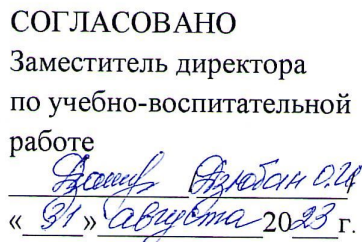 СОГЛАСОВАНО
Заместитель директора
по учебно-воспитательной
работе
Дзюбан О.И.
« 31 » августа 2023 г.